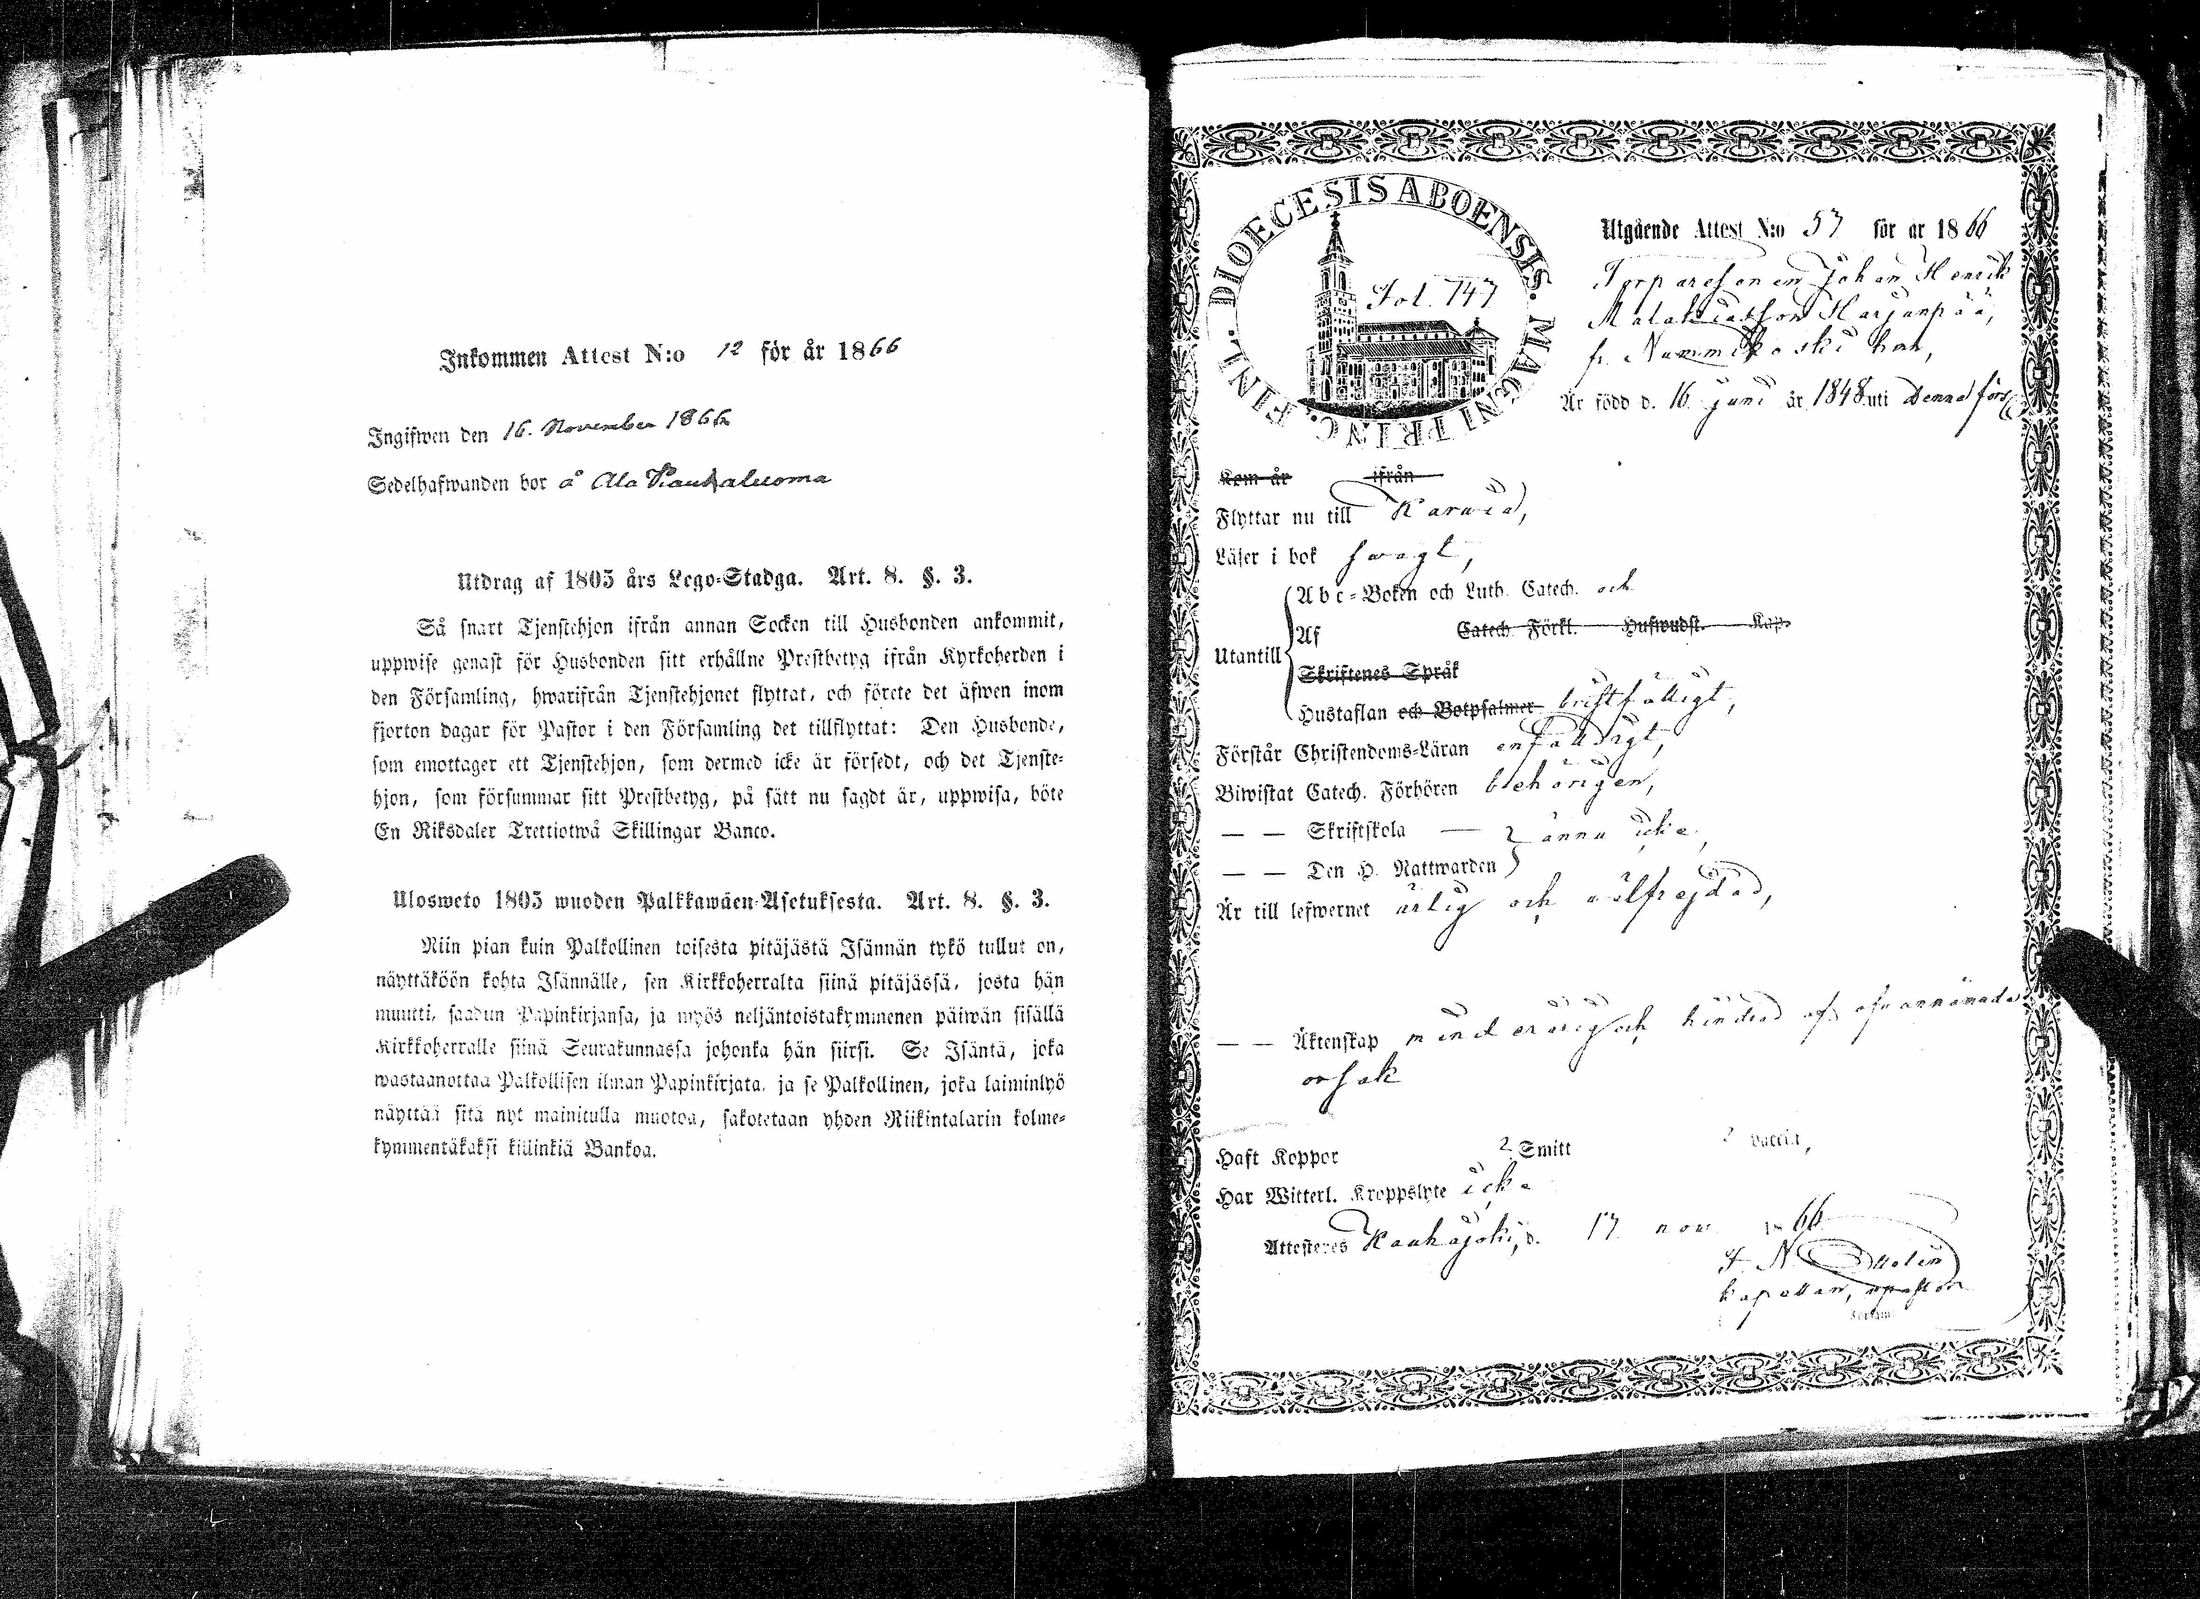 Inkommen Attest N:o 12 för år 1866
Ingifwen den 16. November 1866
Sedelhafwanden bor å Ala Kauhaluoma
Utdrag af 1805 års Lego-Stadga. Art. 8. §. 3.
Så snart Tjenstehjon ifrån annan Socken till Husbonden ankommit,
uppwise genast för Husbonden sitt erhållne Prestbetyg ifrån Kyrkoherden i
den Församling, hwarifrån Tjenstehjonet flyttat, och förete det äfwen inom
fjorton dagar för Pastor i den Församling det tillflyttat: Den Husbonde,
som emottager ett Tjenstehjon, som dermed icke är försedt, och det Tjenste-
hjon, som försummar sitt Prestbetyg, på sätt nu sagdt är, uppwisa, böte
En Riksdaler Trettiotwå Skillingar Banco.
Ulosweto 1805 wuoden Palkkawäen-Asetuksesta. Art. 8. §. 3.
Niin pian kuin Palkollinen toisesta pitäjästä Isännän tykö tullut on,
näyttäköön kohta Isännälle, sen Kirkkoherralta siinä pitäjässä, josta hän
muutti, saadun Papinkirjansa, ja myös neljäntoistakymmenen päiwän sisällä
Kirkkoherralle siinä Seurakunnassa johonka hän siirsi. Se Isäntä, joka
wastaanottaa Palkollisen ilman Papinkirjata, ja se Palkollinen, joka laiminlyö
näyttää sitä nyt mainitulla muotoa, sakotetaan yhden Riikintalarin kolme-
kymmentäkaksi killinkiä Bankoa.
DIOECESIS ABOENSIS. MAGNI PRINC. FINL.
Fol. 747
Utgående Attest N:o 57 för år 1866
Torparesonen Johan Henrik
Malakiasson Harjanpää,
fr. Nummikoski hmn,
Är född d. 16 juni år 1848 uti denna förs
Kom år ifrån
Flyttar nu till Karvia,
Läser i bok swagt,
Utantill
Abc-Boken och Luth. Catech. och
Af Catech. Förkl. Hufwudst. Kap.
Skriftenes Språk
Hustaflan och Botpsalmer bristfälligt,
Förstår Christendoms-Läran enfaldigt,
Biwistat Catech. Förhören behörigen,
— — Skriftskola — ännu icke,
— — Den H. Nattwarden
Är till lefwernet ärlig och välfrejdad,
— — Äktenskap minderårig och hindrad af ofvannämnda
orsak
Haft Koppor 2 Smitt 2 vaccin,
Har Witterl. Kroppslyte icke
Attesteres Kauhajoki, d. 17 nov. 1866
kapellan, v. pastor